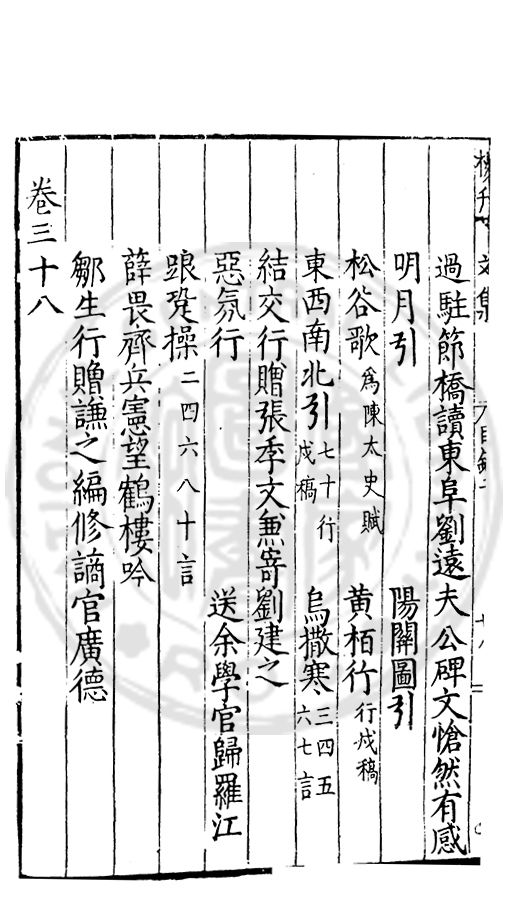 文集 目錄
過駐節橋讀東阜劉遠夫公碑文愴然有感
明月引 陽關圖引
松谷歌 爲陳太史賦 黃栢行 行戍稿
東西南北引 七十行戍稿 烏撒寒 三四五六七言
結交行贈張季文兼寄劉建之
惡氛行 送余學官歸羅江
操 二四六八十言
薛畏齊兵憲望鶴樓吟
鄒生行贈謙之編修謫官廣德
卷三十八